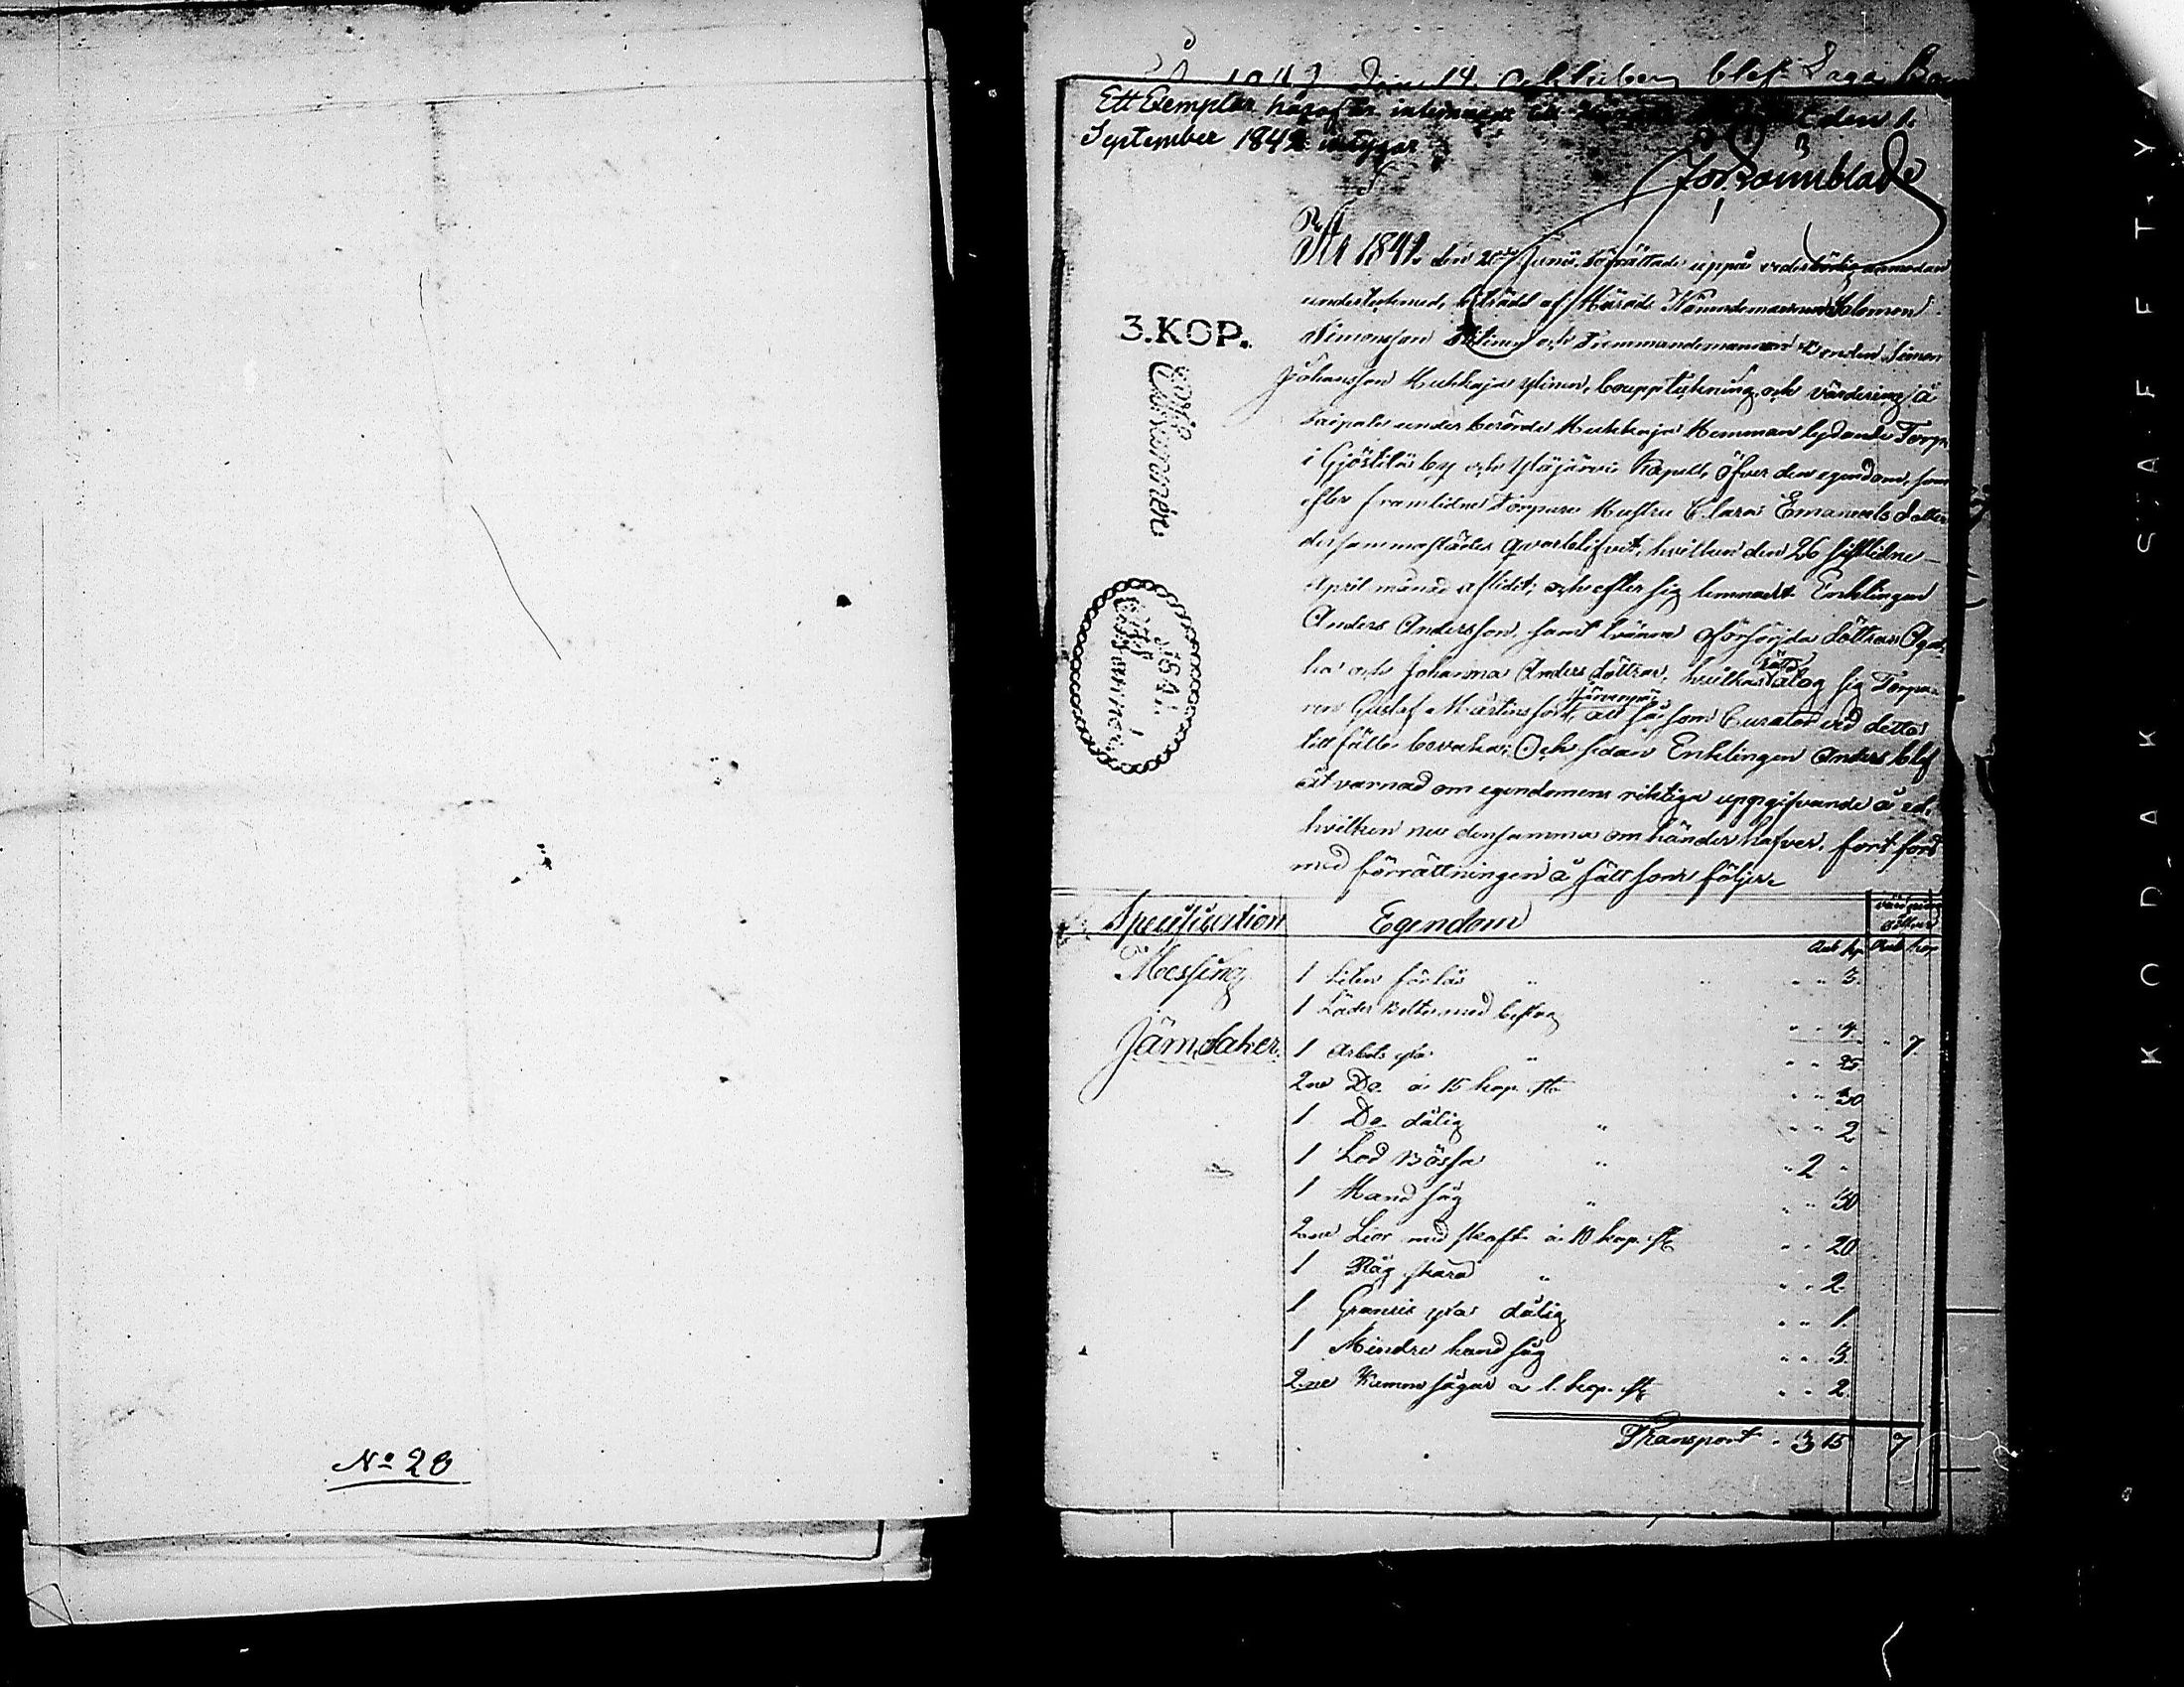 No 20
den 14 October blef Laga
Ett Exemplar häraf är inlemnadt den 1.
September 1842 intygar
År 1841. den Junii, förrättade uppå vederbörlig anmodan
undertecknad, biträdd af Härads Nämndemannen Salomon
Simonsson och Nämmandemannen Bonden Simon
Johansson Kukkaja Ylinen, bouppteckning och värdering å
Laipala under berörde Kukkaja Hemman lydande Torp
i Gjöstilä by och Ylöjärvi Kapell, öfver den egendom, som
efter framlidne Torpare Hustru Clara Emanuels dotter
dersammastädes qvarblifvit, hvilken den 26 sistlidne
April månad aflidit, och efter sig lemnadt Enklingen
Anders Andersson, samt tvänne oförsörjda döttrar Aga-
ha och Johanna Anders döttrar, hvilkas rätt åtog sig Torpa-
ren Gustaf Mårtinsson Järvenpää, att såsom Curator vid detta
tillfälle bevaka; Och sedan Enklingen Anders blef
åtvarnad om egendomens riktiga uppgifvande å ed,
hvilken nu densamma om händer hafver, fort fors
med förrättningen å sätt som följer
3.KOP.
Specification Egendom
Rub kop Rub kop
Messing 1 liten förlås " " " " 3.
1 Läder Bälte med beslag " " 4. " 7
Järnsaker. 1 Arbets yxa " " " 25
2ne Do. à 15 kop. st. " " 30
1 Do. dålig " " " 2
1 Lod Bössa " " 2 "
1 Hand såg " " " 30
2ne Lior med skaft à 10 kop. st. " " 20
1 Råg skära " " " 2.
1 yxa dålig " " 1.
1 Mindre hand såg " " 3.
2ne sågar à 1. kop. st. " " 2.
Transport " 3 15 7